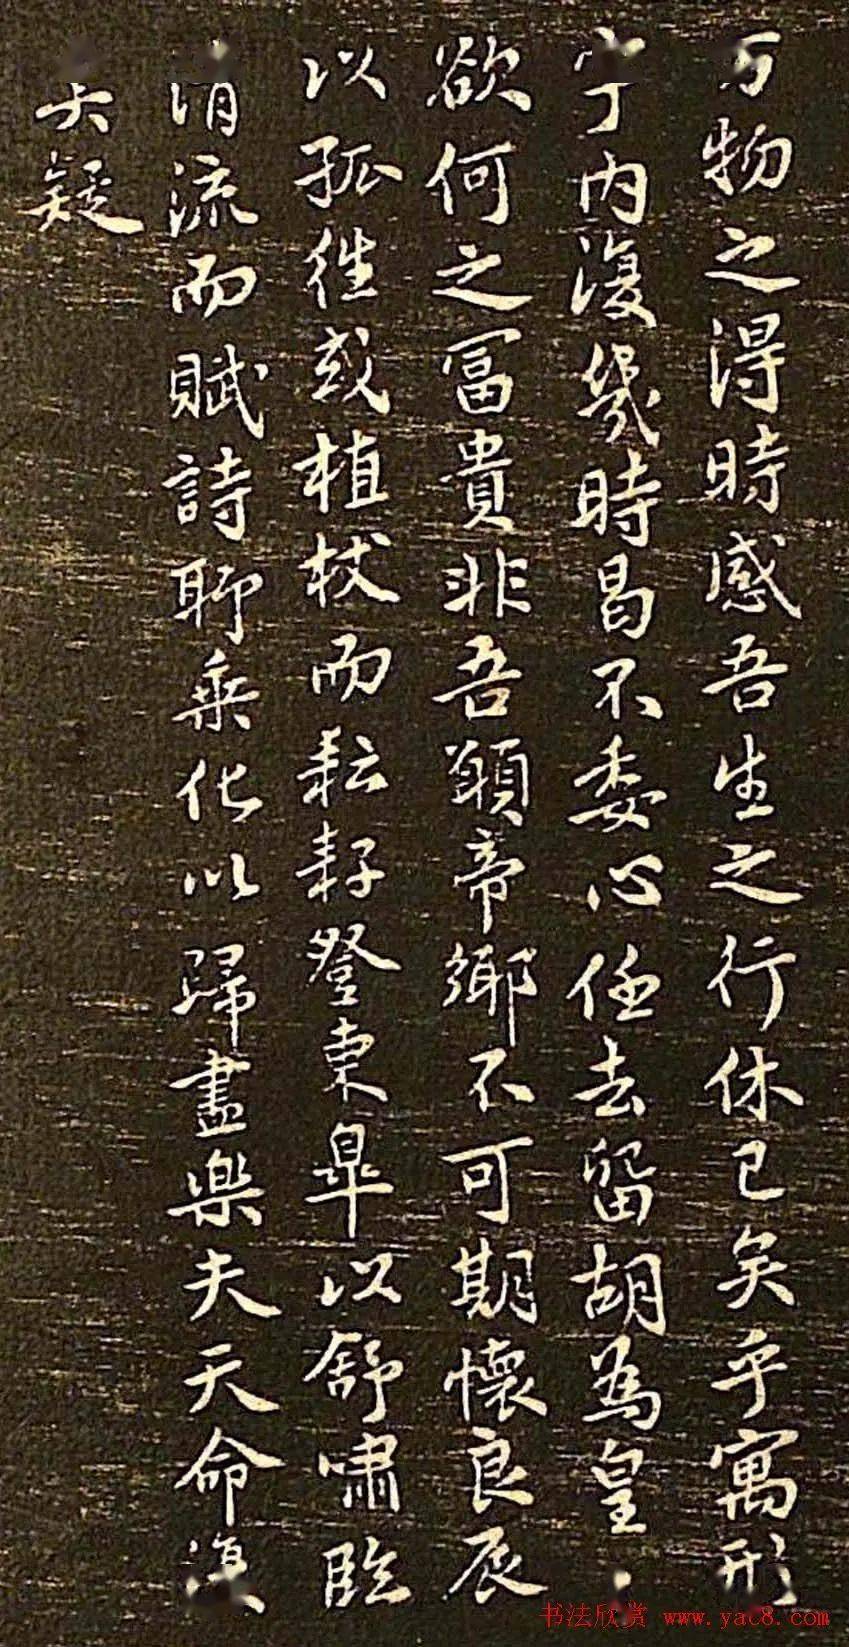 万物之得時感吾生之行休已矣乎寓形
宇内復幾時曷不委心任去留胡為皇〻
欲何之冨貴非吾願帝鄉不可期懷良辰
以孤徃或植杖而耘耔登東臯以舒嘯臨
清流而賦詩聊乘化以歸盡樂夫天命復
奚疑
书法欣赏 www.yac8.com